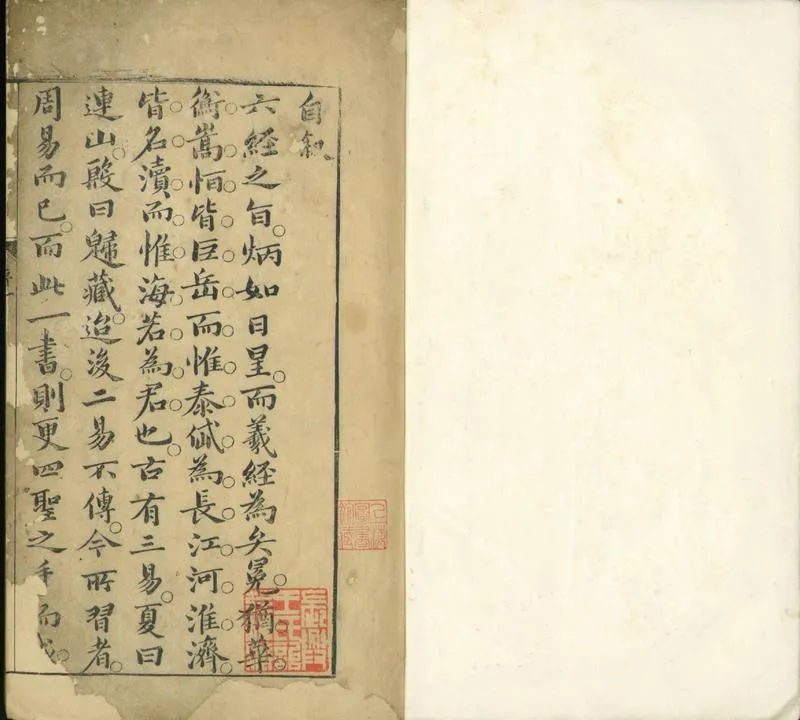 自叙
六經之旨。炳如日星。而羲經為弁冕。猶華。
衡嵩恒皆巨岳而惟泰岱為長江河淮濟
皆名瀆而惟海若為君也。古有三易。夏曰
連山。殷曰歸藏。迨後二易不傳。今所習者。
周易而已。而此一書。則更四聖之手而成。